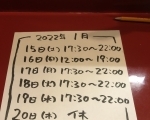 2022年 1月
15日(土) 17:30〜22:00
16日(日) 12:00〜19:00
17日(月) 17:30〜22:00
18日(火) 17:30〜22:00
19日(水) 17:30〜22:00
20日(木) 休